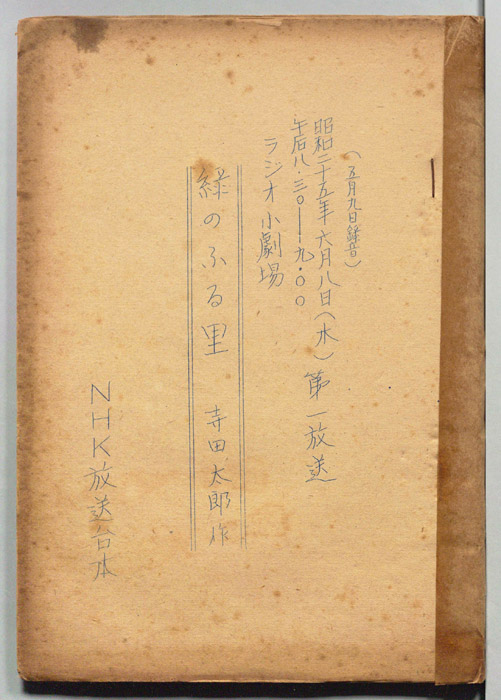 (五月九日録音)
昭和二十五年六月八日(木)第一放送
午后八・三〇——九・〇〇
ラジオ小劇場
緑のふる里 寺田太郎作
NHK放送台本